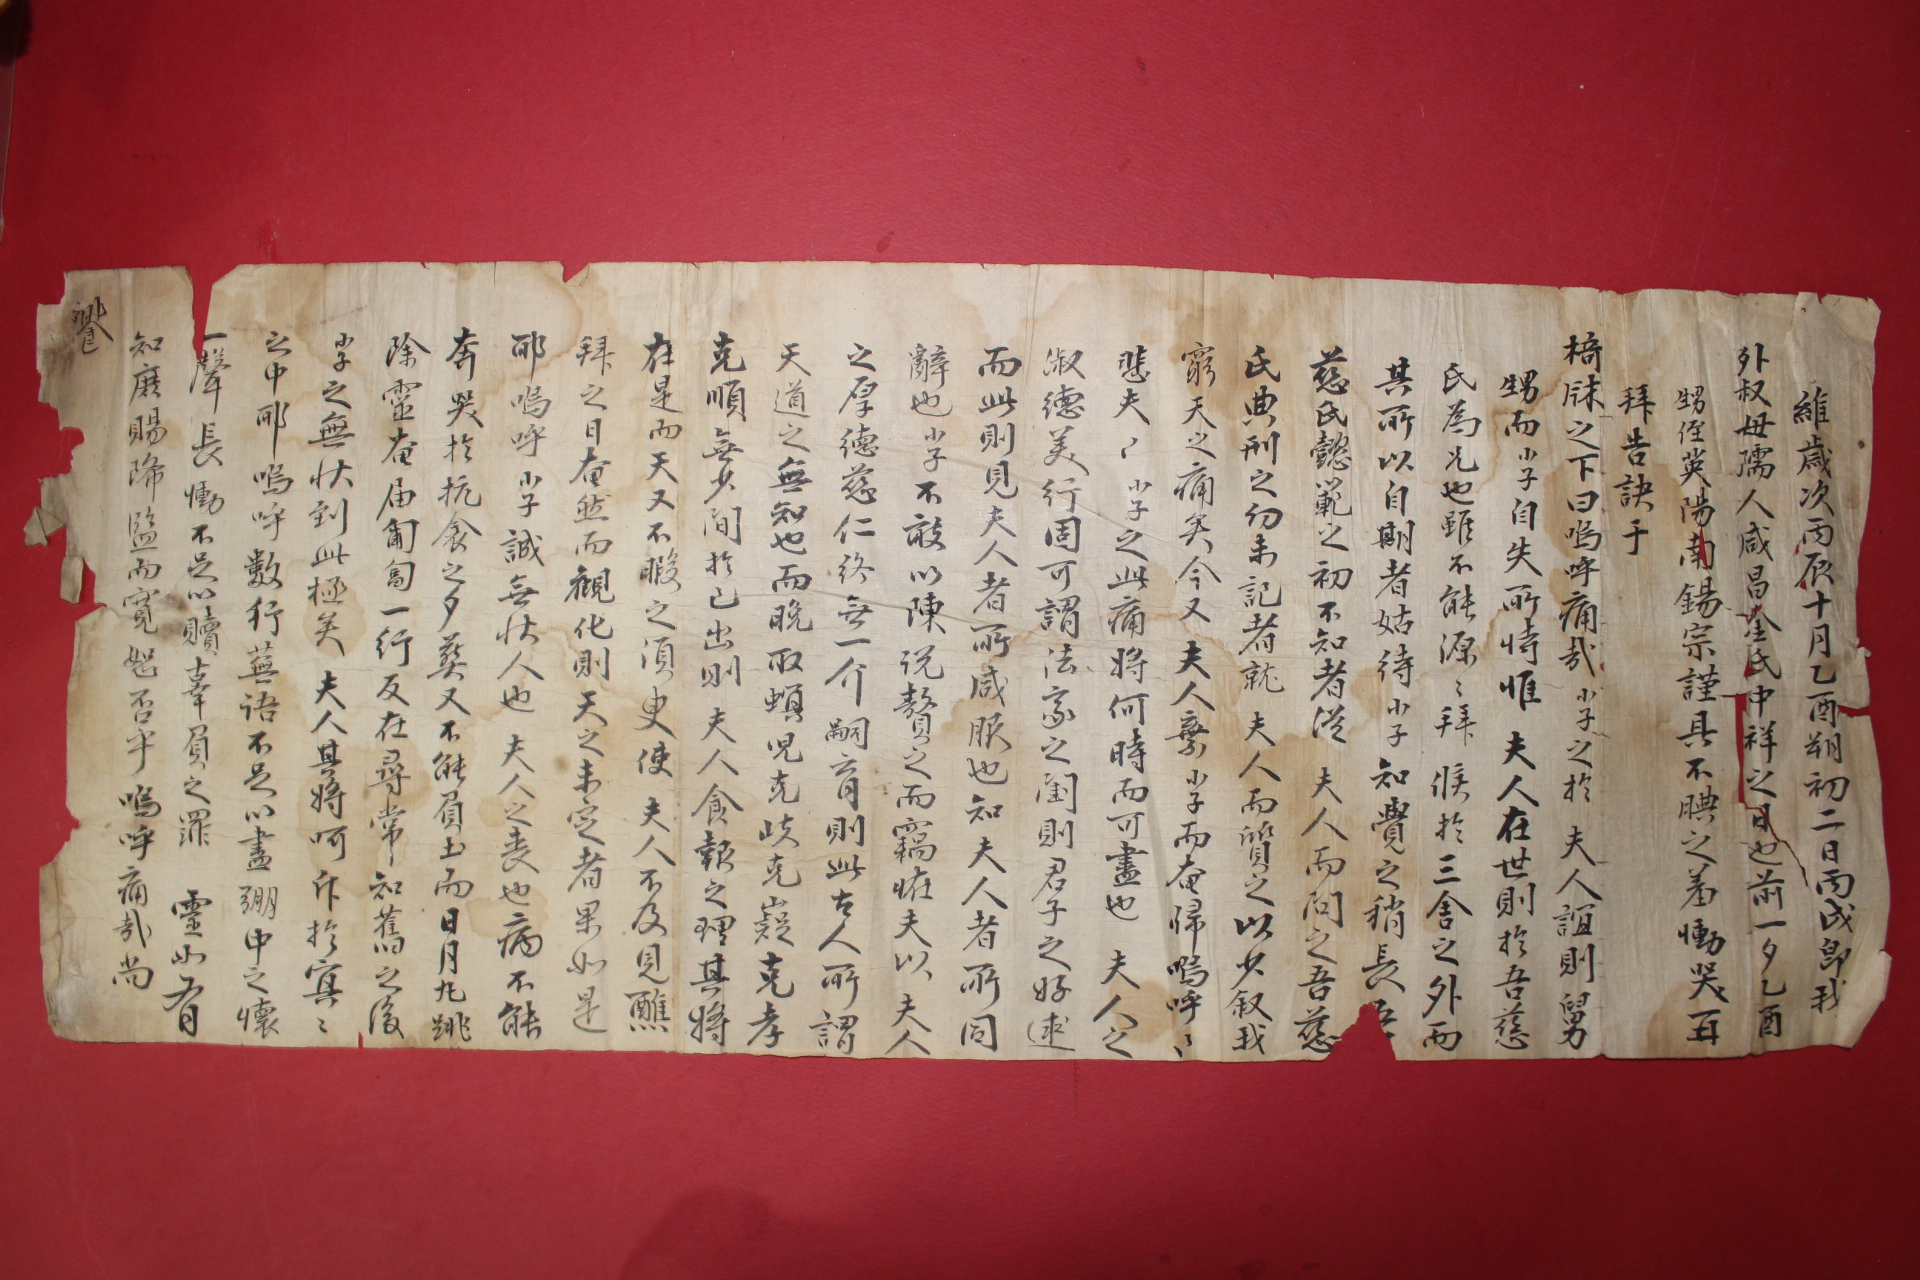 維歲次丙辰十月乙酉朔初二日丙戌卽我
外叔母孺人咸昌金氏中祥之日也前一夕乙酉
甥侄英陽南錫宗謹具不腆之羞慟哭再
拜告訣于
椅牀之下曰嗚呼痛哉小子之於 夫人誼則舅
甥而小子自失所恃惟 夫人在世則於吾慈
氏爲兄也雖不能源〻拜 候於三舍之外而
其所以自期者姑待小子知覺之稍長吾
慈氏懿範之初不知者從 夫人而問之吾慈
氏典刑之幼未記者就 夫人而質之以少敍我
窮天之痛矣今又 夫人棄小子而奄歸嗚呼〻
悲夫〻小子之此痛將何時而可盡也 夫人之
淑德美行固可謂法家之閨則君子之好逑
而此則見夫人者所咸服也知夫人者所同
辭也小子不敢以陳說贅之而竊惟夫以 夫人
之厚德慈仁終無一介嗣育則此古人所謂
天道之無知也而晩取螟兒克岐克嶷克孝
克順無少間於已出則 夫人食報之理其將
在是而天又不暇之須臾使 夫人不及見醮
拜之日奄然而觀化則天之未定者果如是
耶嗚呼小子誠無狀人也 夫人之喪也病不能
奔哭於抗衾之夕葬又不能負土而日月九跳
除靈奄届匍匐一行反在尋常知舊之後
小子之無狀到此極矣 夫人其將呵斥於冥〻
之中耶 嗚呼數行蕪語不足以盡弸中之懷
一聲長慟不足以贖辜負之罪 靈如有
知庶賜降監而寬恕否乎嗚呼痛哉尙
饗